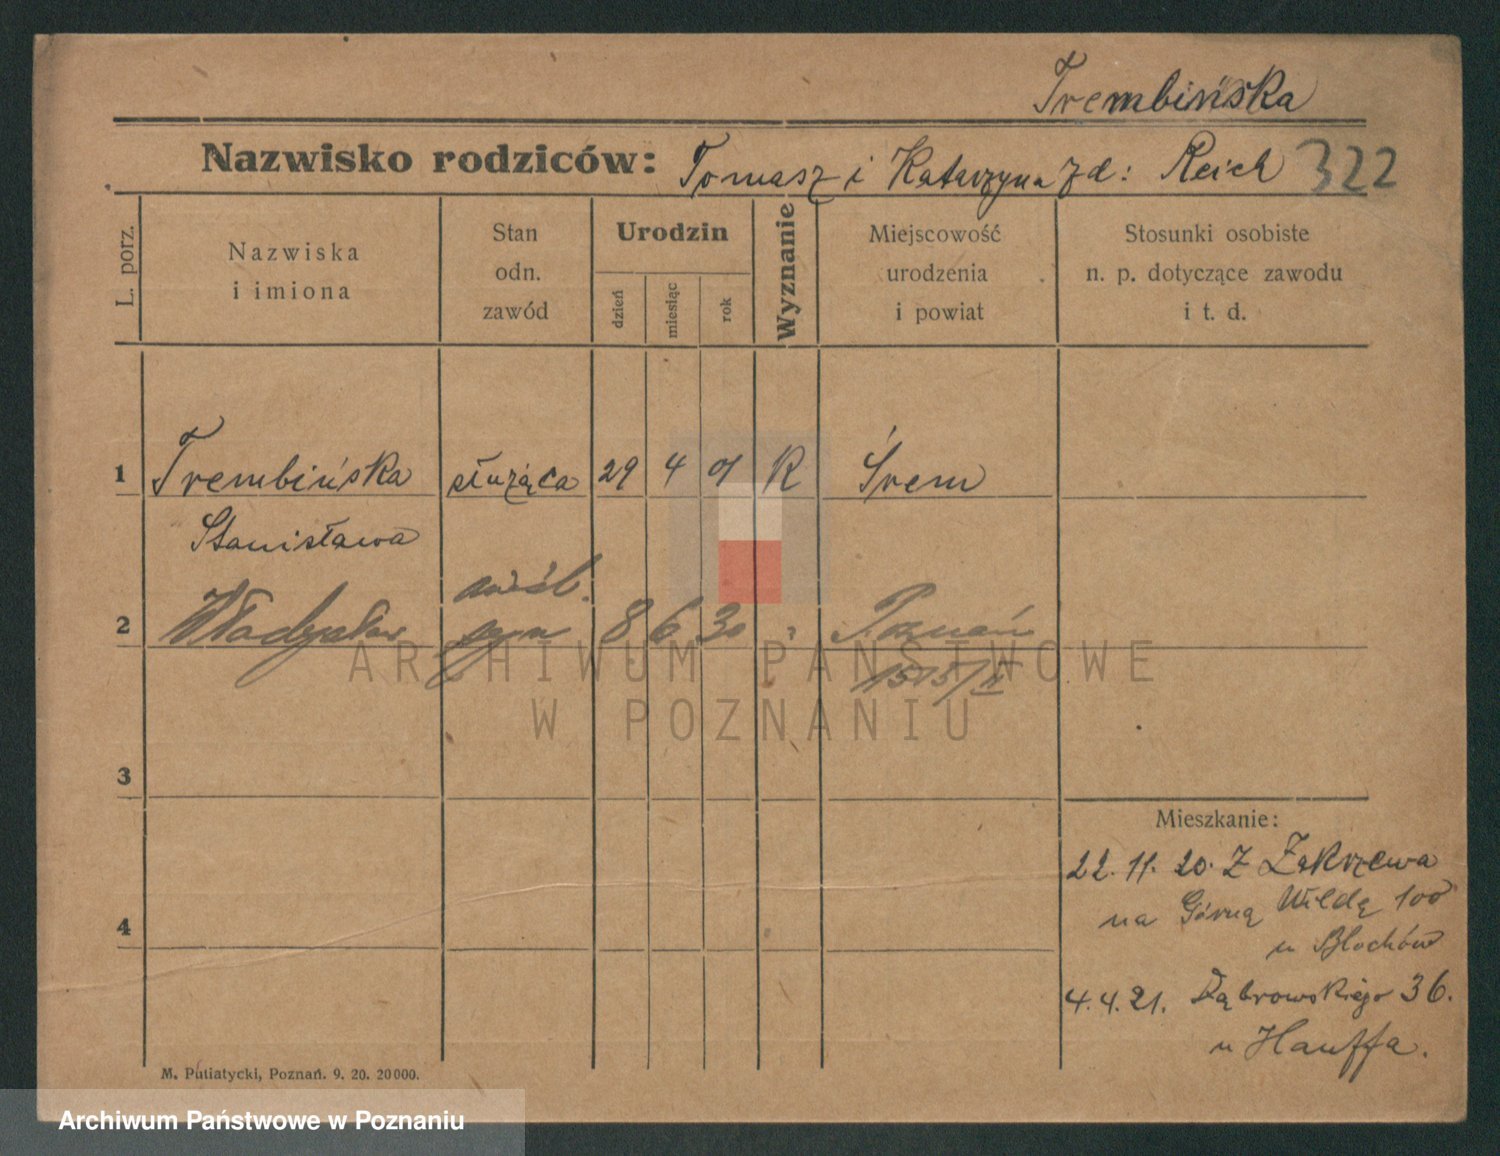 Trembińska
Nazwisko rodziców: Tomasz i Katarzyna zd: Reich 322
L. porz.
Nazwiska
i imiona
Stan
odn.
zawód
Urodzin
dzień
miesiąc
rok
Wyznanie
Miejscowość
urodzenia
i powiat
Stosunki osobiste
n. p. dotyczące zawodu
i t. d.
1 Trembińska służąca 29 4 01 K Śrem
Stanisława
nieśl.
2 Władysław syn 8 6 30 " Poznań
1515/II
3
4
Mieszkanie:
22. 11. 20. Z Zakrzewa
na Górną Wildę 100
u Blochów
4. 4. 21. Dąbrowskiego 36.
u Hauffa.
M. Putiatycki, Poznań. 9. 20. 20000.
ARCHIWUM PAŃSTWOWE
W POZNANIU
Archiwum Państwowe w Poznaniu